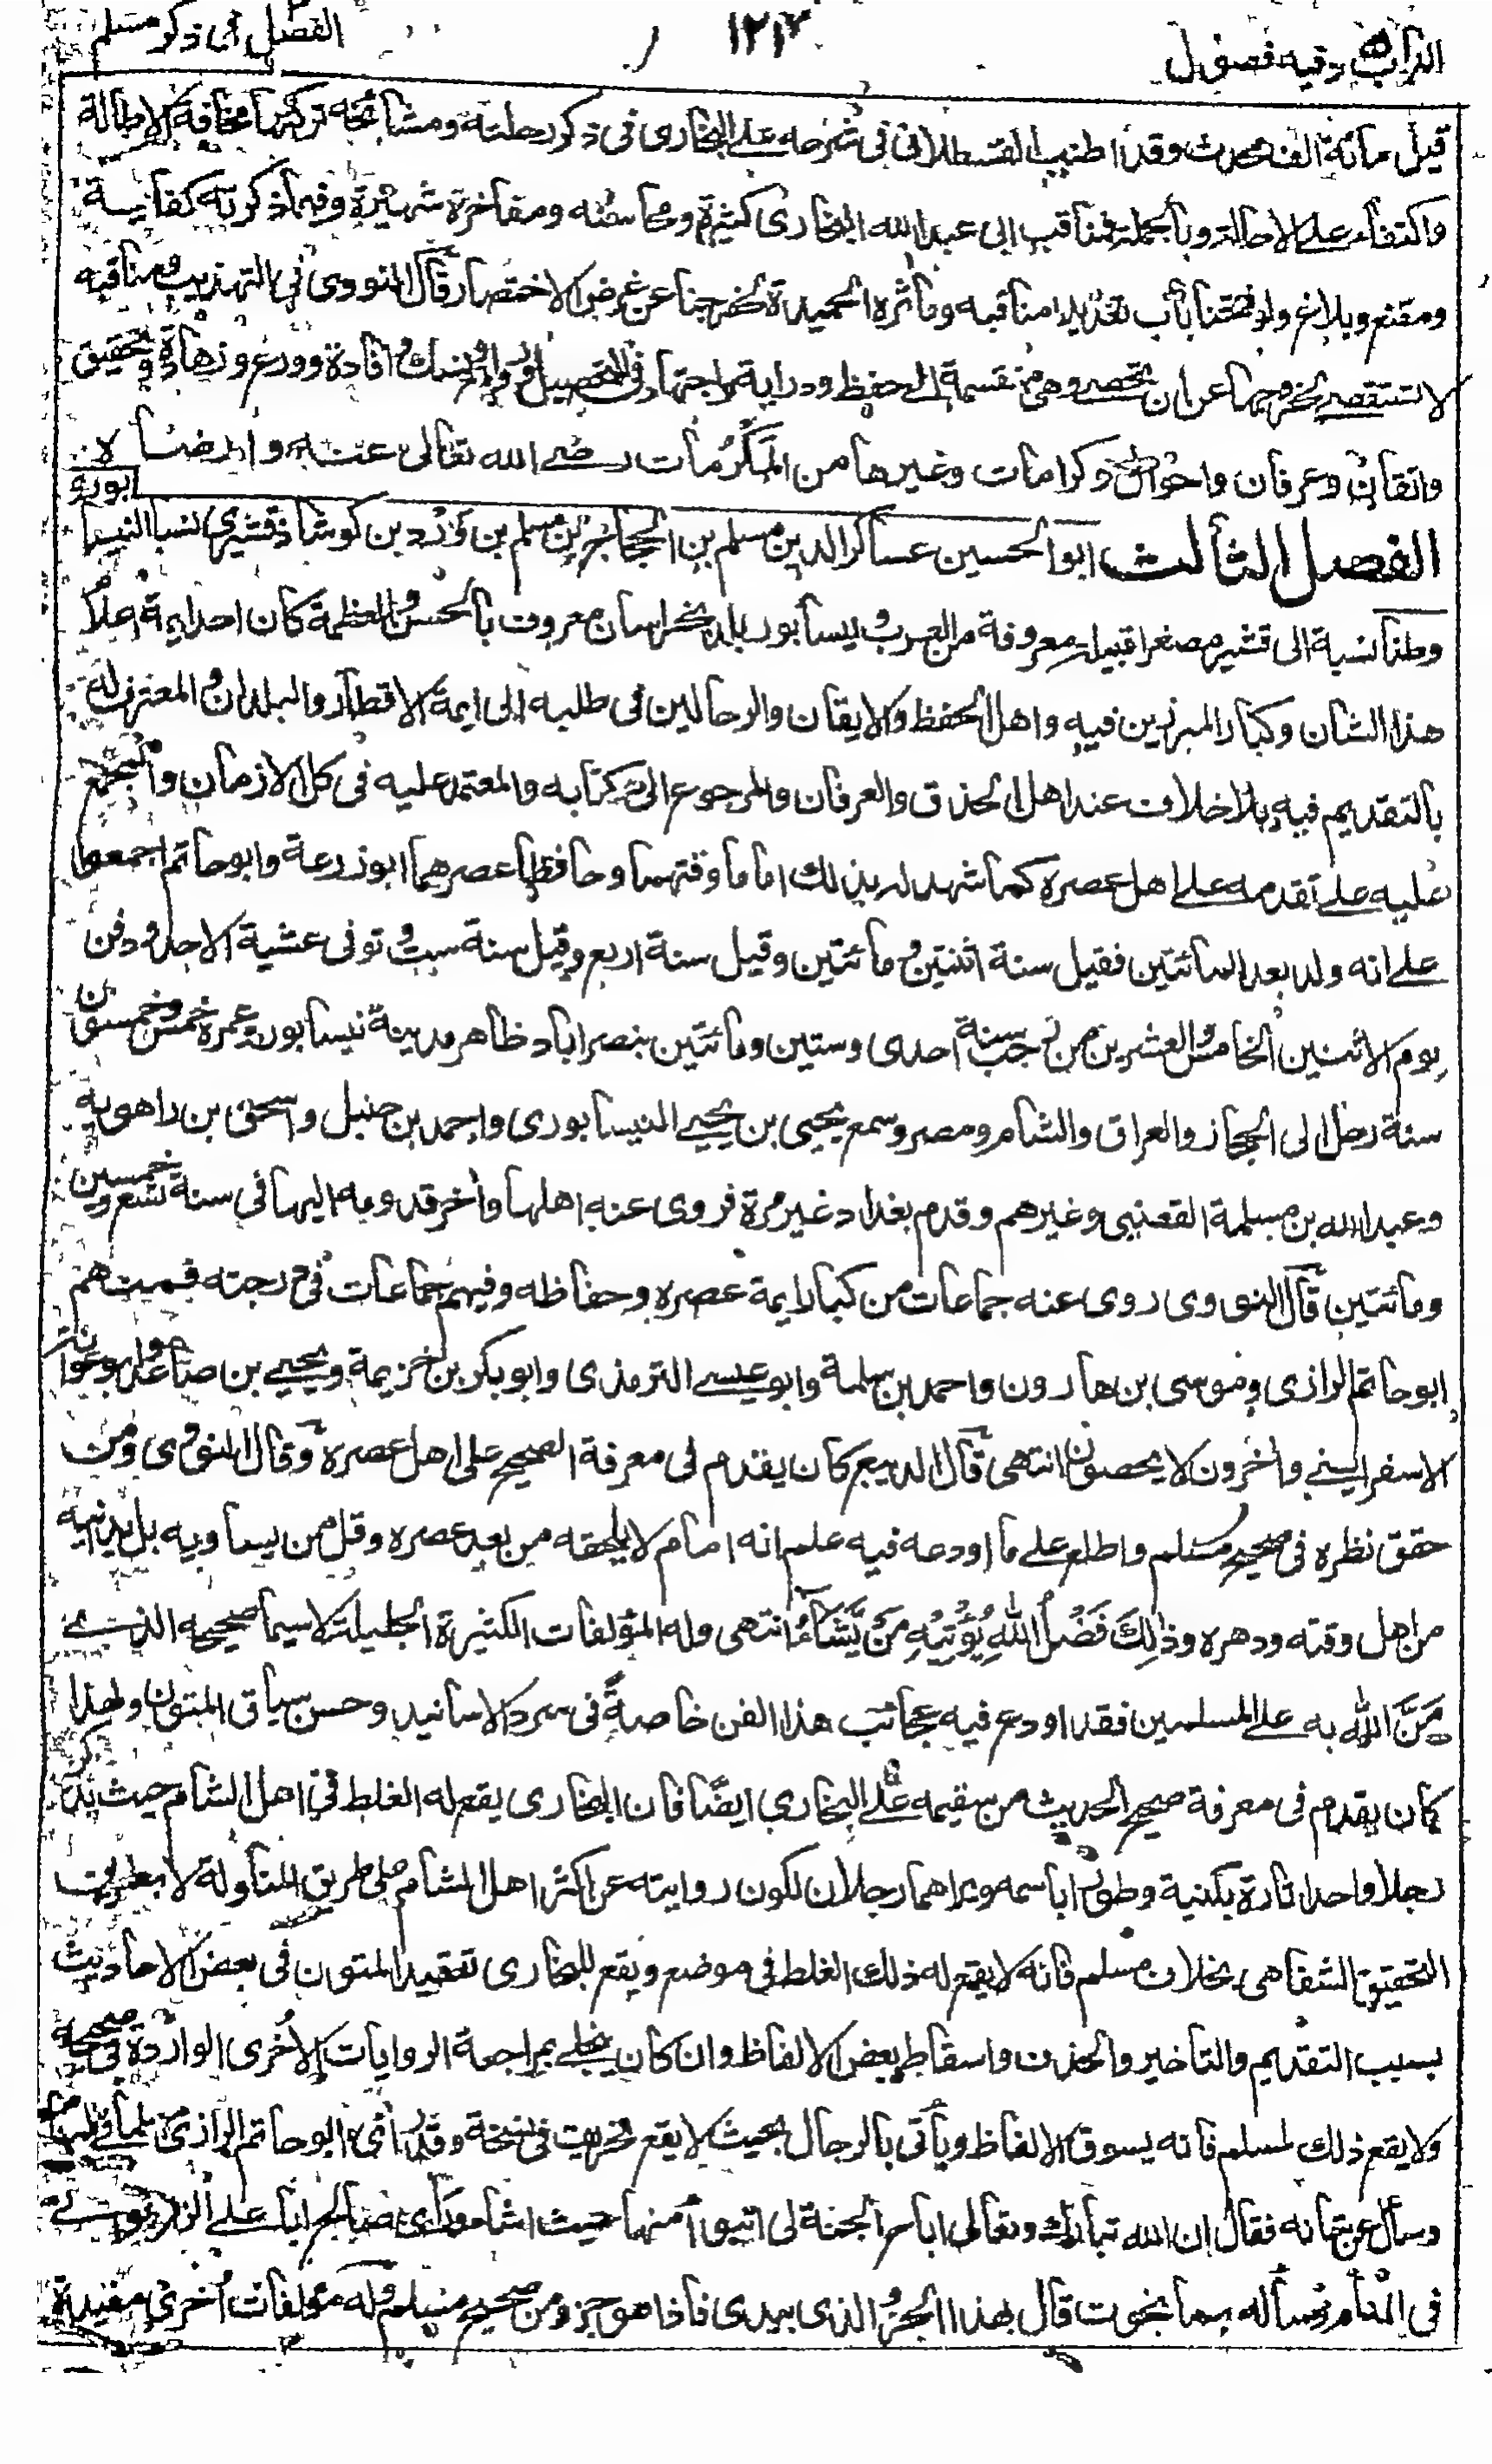 الباب وفيه فصول
١٢١٣
الفصل في ذكر مسلم
قيل مائة الف محدث وقد اطنب القسطلاني في شرحه على البخاري في ذكر رحلته ومشائخه تركتها مخافة الاطالة
واكتفاء على الاحالة وبالجملة فمناقب ابي عبد الله البخاري كثيرة ومحاسنه ومفاخرة شهيرة وفيما ذكرته كفاية
ومقنع وبلاغ ولو فتحنا باب تعديد مناقبه ومآثره الحميدة لخرجنا عن غرض الاختصار قال النووي في التهذيب ومناقبه
لا تستقصى لخروجها عن ان تحصى وهي منقسمة الى حفظ ودراية واجتهاد في التحصيل ورواية ونسك وافادة وورع وزهادة وتحقيق
واتقان وعرفان واحوال وكرامات وغيرها من المكرمات رضي الله تعالى عنه وارضاه
الفصل الثالث ابو الحسين عساكر الدين مسلم بن الحجاج بن مسلم بن ورد بن كوشاذ قشيري نسبا النيسابوري
وطنا نسبة الى قشير مصغرا قبيلة معروفة من العرب ونيسابور بلد بخراسان معروف بالحسن والعظمة كان احد ائمة اعلام
هذا الشان وكبار المبرزين فيه واهل الحفظ والايقان والرحالين في طلبه الى ايمة الاقطار والبلدان والمعترف له
بالتقديم فيه بلا خلاف عند اهل الحذق والعرفان والمرجوع الى كتابه والمعتمد عليه في كل الازمان والمجمع
عليه على تقدمه على اهل عصره كما شهد له بذلك اماما وقتهما وحافظا عصرهما ابو زرعة وابو حاتم اجمعوا
على انه ولد بعد المائتين فقيل سنة اثنتين ومائتين وقيل سنة اربع وقيل سنة ست وتوفى عشية الاحد ودفن
يوم الاثنين الخامس والعشرين من رجب سنة احدى وستين ومائتين بنصراباد ظاهر مدينة نيسابور وعمره خمس وخمسون
سنة رحل الى الحجاز والعراق والشام ومصر وسمع يحيى بن يحيى النيسابوري واحمد بن حنبل واسحق بن راهويه
وعبد الله بن مسلمة القعنبي وغيرهم وقدم بغداد غير مرة فروى عنه اهلها وأخر قدومه اليها في سنة تسع وخمسين
ومائتين قال النووي روى عنه جماعات من كبار ايمة عصره وحفاظه وفيهم جماعات في درجته فمنهم
ابو حاتم الرازي وموسى بن هارون واحمد بن سلمة وابو عيسى الترمذي وابو بكر بن خزيمة ويحيى بن صاعد وابو عوانة
الاسفرايني وأخرون لا يحصون انتهى قال الديبع كان يقدم في معرفة الصحيح على اهل عصره وقال النووي ومن
حقق نظره في صحيح مسلم واطلع على ما اودعه فيه علم انه امام لا يلحقه من بعد عصره وقل من يساويه بل يدانيه
من اهل وقته ودهره وذٰلِكَ فَضْلُ اللهِ يُؤْتِيْهِ مَنْ يَّشَاءُ انتهى وله المؤلفات الكثيرة الجليلة لا سيما صحيحه الذي
مَنَّ الله به على المسلمين فقد اودع فيه عجائب هذا الفن خاصةً في سرد الاسانيد وحسن سياق المتون ولهذا
كان يقدم في معرفة صحيح الحديث من سقيمه على البخاري ايضًا فان البخاري يقع له الغلط في اهل الشام حيث يذكر
رجلا واحدا تارة بكنية وطورا باسمه ويراهما رجلان لكون روايته عن اكثر اهل الشام على طريق المناولة لا بطريق
التحقيق الشفاهي بخلاف مسلم فانه لا يقع له ذلك الغلط في موضع ويقع للبخاري تعقيد المتون في بعض الاحاديث
بسبب التقديم والتاخير والحذف واسقاط بعض الالفاظ وان كان ينجلي بمراجعة الروايات الاُخرى الواردة في صحيحه
ولا يقع ذلك لمسلم فانه يسوق الالفاظ ويأتى بالرجال بحيث لا يقع تحريف في نسخة وقد رأى ابو حاتم الرازي مسلما في
وسأل عن حاله فقال ان الله تبارك وتعالى اباح الجنة لي اتبوأ منها حيث اشاء ورأى بعض الصالحين ابا علي
في المنام وسأله بما نجوت قال بهذا الجزء الذي بيدي فاذا هو جزء من صحيح مسلم وله مؤلفات اُخرى مفيدة